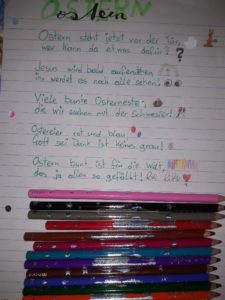 OSTERN
Ostern
Ostern steht jetzt vor der Tür,
wer kann da etwas dafür? ?
Jesus wird bald auferstehen
ihr werdet es noch alle sehen!
Viele bunte Osternester,
die wir suchen mit der Schwester!
Ostereier rot und blau,
Gott sei Dank ist keines grau!
Ostern bunt ist für die Welt,
des ja alles so gefällt!